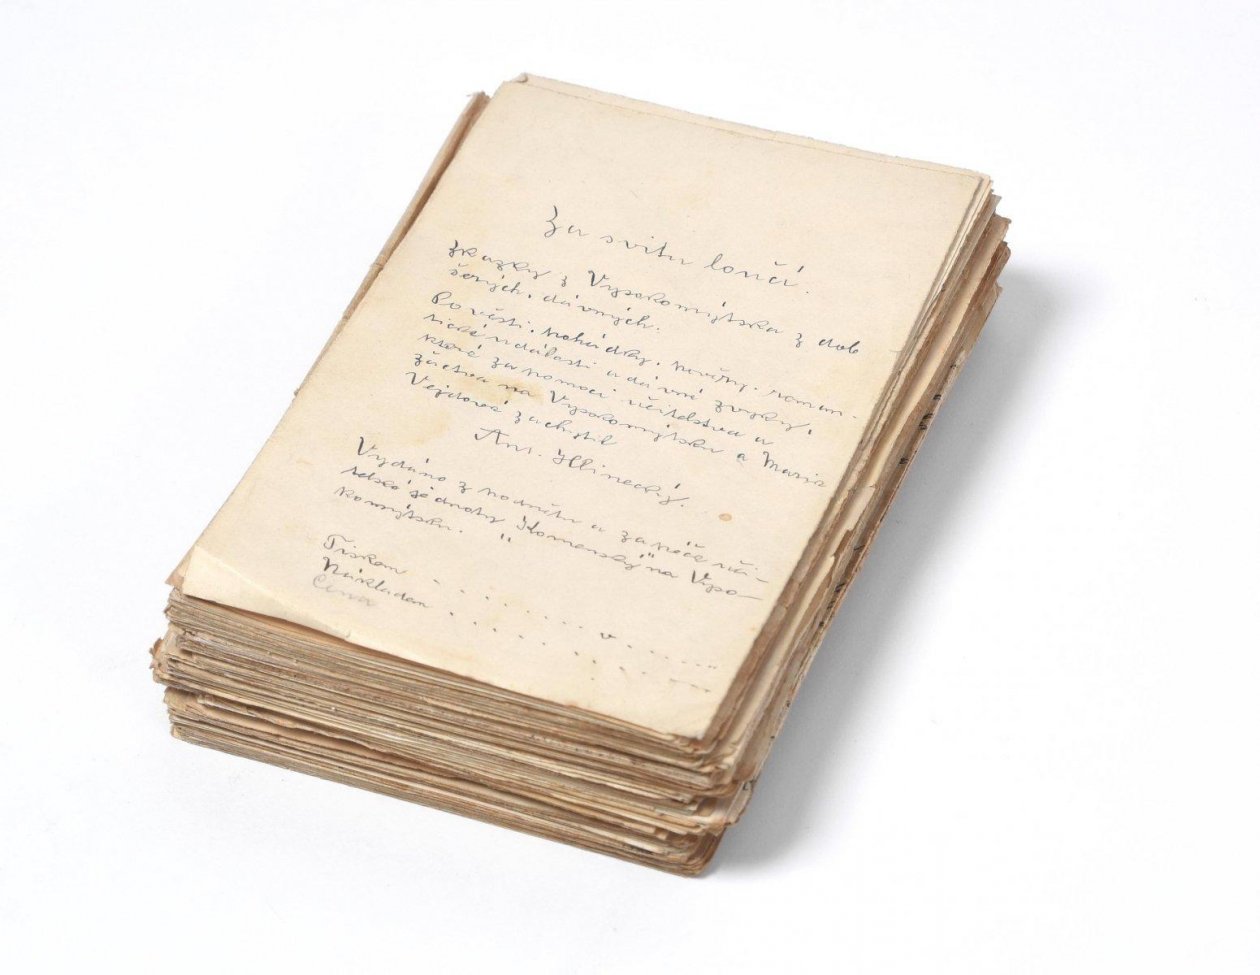 Za svitu loučí.
Zkazky z Vysokomýtska z dob
šerých, dávných.
Pověsti, pohádky, pověry, roman-
tické události a dávné zvyky,
které za pomoci učitelstva a
žactva na Vysokomýtsku a Marie
Vejdové zachytil
Ant. Hlinecký.
Vydáno z podnětu a za péče uči-
telské jednoty "Komenský" na Vyso-
komýtsku.
Tiskem . . . . . . . v . . . . . .
Nákladem . . . . . . . . . . .
Cena